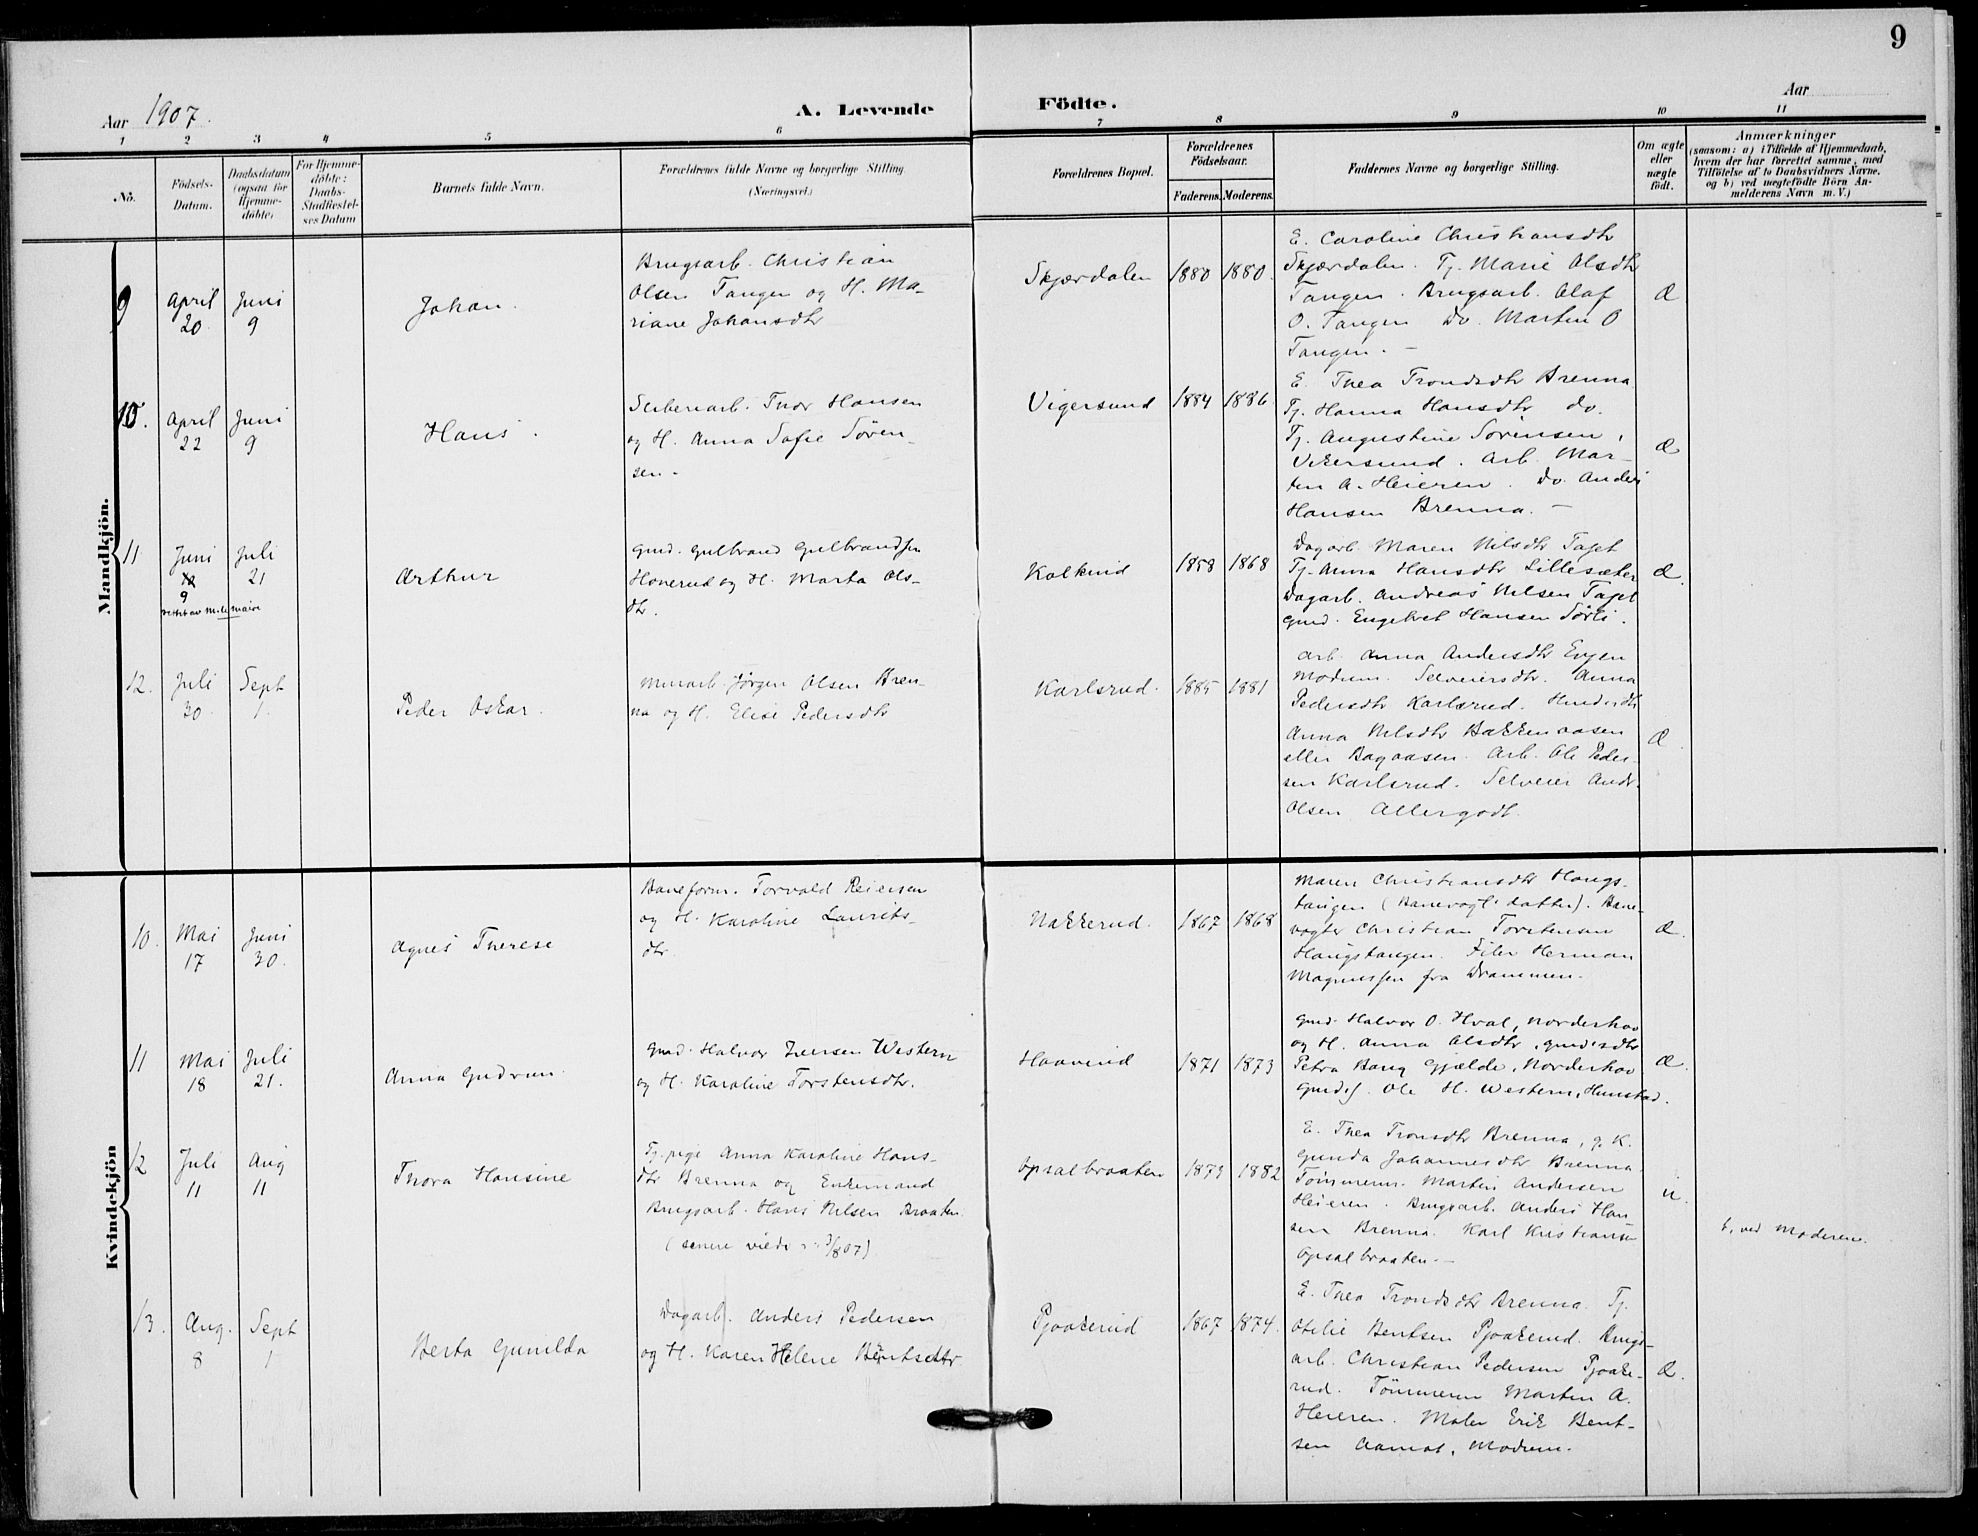 9
Aar 1907.
A. Levende
Födte.
Aar
1 2 3 4 5 6 7 8 9 10 11
No.
Födsels-
Datum.
Daabsdatum
(ogsaa for
Hjemme-
döbte)
For Hjemme-
döbte:
Daabs-
Stadfæstel-
ses Datum
Barnets fulde Navn.
Forældrenes fulde Navne og borgerlige Stilling
(Næringsvei.)
Forældrenes Bopæl.
Forældrenes
Födselsaar.
Faderens. Moderens.
Faddernes Navne og borgerlige Stilling.
Om ægte
eller
uægte
födt.
Anmærkninger
(saasom: a) i Tilfælde af Hjemmedaab,
hvem der har forrettet samme, med
Tilföielse af to Daabsvidners Navne,
og b) ved uægtefödte Börn An-
melderens Navn m. V.)
Mandkjön.
9
April
20
Juni
9
Johan.
Brugsarb. Christian
Olsen Tangen og H. Ma-
riane Johansdtr
Skjærdalen
1880 1880.
E. Caroline Christiansdtr
Skjærdalen. Tj. Marie Olsdtr
Tangen. Brugsarb. Olaf
O. Tangen Do. Martin O
Tangen. -
Æ
10.
April
22
Juni
9
Hans.
Thor Hansen
og H. Anna Sofie Sören-
sen -
Vigersund
1884 1886
E. Thea Trondsdtr Brenna
Tj. Hanna Hansdtr do.
Tj. Augustine Sörensen,
Vikersund. Arb. Mar-
tin A. Heieren. Do. Anders
Hansen Brenna. -
Æ
11
Juni
9
Juli
21
Arthur
Gmd. Gulbrand Gulbrandsen
Honerud og H. Marta Ols-
dtr.
Kalkind
1858 1868
Dagarb. Maren Nilsdtr Taget
Tj. Anna Hansdtr Lillesæter
Dagarb. Andreas Nilsen Taget
Gmd. Engebret Hansen Sörli.
Æ.
12.
Juli
30.
Sept
1.
Peder Oskar.
Murarb. Jörgen Olsen Bren-
na og H. Elise Pedersdtr
Karlsrud.
1885 1881
Arb. Anna Andersdtr Evjen
Modum. Selveiersdtr. Anna
Pedersdtr Karlsrud.
Anna Nilsdtr Bakkenaasen
eller Bagaasen. Arb. Ole Peder-
sen Karlsrud. Selveier Andr.
Olsen Allergodt.
Æ.
Kvindekjön
10.
Mai
17
Juni
30.
Agnes Therese
Baneform. Torvald Reiersen
og H. Karoline Laurits-
dtr.
Nakkerud.
1867 1868
Maren Christiansdtr Haugs-
tangen (Banevogt. datter). Bane-
vogter Christian Torstensen
Haugstangen. Filer Herman
Magnussen fra Drammen.
Æ.
11
Mai
18
Juli
21.
Anna Gudrun.
Gmd. Halvor Iversen Western
og H. Karoline Torstensdtr.
Haavind
1871 1873
Gmd. Halvor O. Hval, Norderhov
og H. Anna Olsdtr, gmdsdtr
Petra Bang Gjælde, Norderhov
Gmds. Ole H. Western, Hunstad.
Æ.
12
Juli
11
Aug
11
Thora Hansine
Tj.pige Anna Karoline Hans-
dtr Brenna og Enkemand
Brugsarb. Hans Nilsen Braaten.
(senere viede 3/8 07)
Opsalbraaten
1873 1882
E. Thea Tronsdtr Brenna, g. K.
Gunda Johannesdtr Brenna.
Tömmerm. Martin Andersen
Heieren. Brugsarb. Anders Han
sen Brenna. Karl Kristiansen
Opsalbraaten. -
u.
b, ved Moderen.
13.
Aug.
8
Sept
1
Berta Gunilda
Dagarb. Anders Pedersen
og H. Karen Helene Bentsdtr.
Pjaakerud
1867 1874.
E. Thea Trondsdtr Brenna. Tj.
Otelie Bentsen Pjaakerud. Brugs-
arb. Christian Pedersen Pjaake-
rud. Tömmerm Martin A.
Heieren. Maler Erik Bent-
sen Aamot, Modum.
Æ.